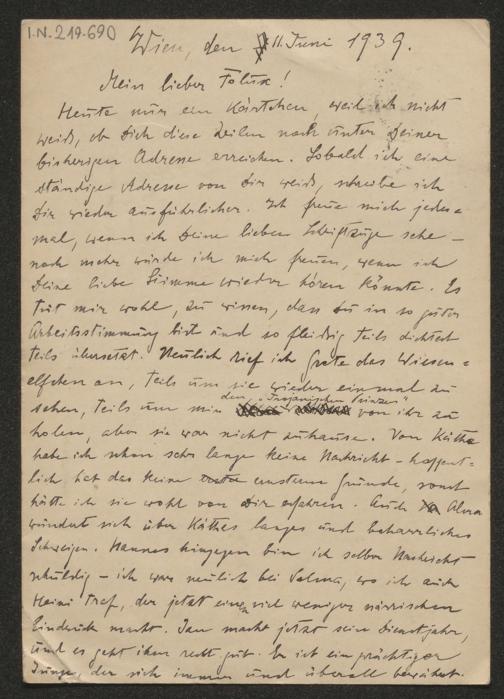 I.N. 219.690
Wien, den 11. Juni 1939.
Mein lieber Felix!
Heute nur ein Kärtchen, weil ich nicht
weiß, ob Dich diese Zeilen noch unter Deiner
bisherigen Adresse erreichen. Sobald ich eine
ständige Adresse von Dir weiß, schreibe ich
Dir wieder ausführlicher. Ich freue mich jedes=
mal, wenn ich Deine lieben Schriftzüge sehe –
noch mehr würde ich mich freuen, wenn ich
Deine liebe Stimme wieder hören könnte. Es
tut mir wohl, zu wissen, dass Du in so guter
Arbeitsstimmung bist und so fleißig teils dichtest
teils übersetzt. Neulich rief ich Grete das Wiesen=
elfchen an, teils um sie wieder einmal zu
sehen, teils um mir den „Trojanischen Prinzen" von ihr zu
holen, aber sie war nicht zuhause. Von Käthe
habe ich schon sehr lange keine Nachricht – hoffent=
lich hat das keine ernsteren Gründe, sonst
hätte ich sie wohl von Dir erfahren. Auch Alma
wundert sich über Käthes langes und beharrliches
Schweigen. Hannes hingegen bin ich selber Nachricht
schuldig – ich war neulich bei Selma, wo ich auch
Heini traf, der jetzt einen viel weniger närrischen
Eindruck macht. Jan macht jetzt sein Dienstjahr,
und es geht ihm recht gut. Er ist ein prächtiger
Junge, der sich immer und überall bewährt.